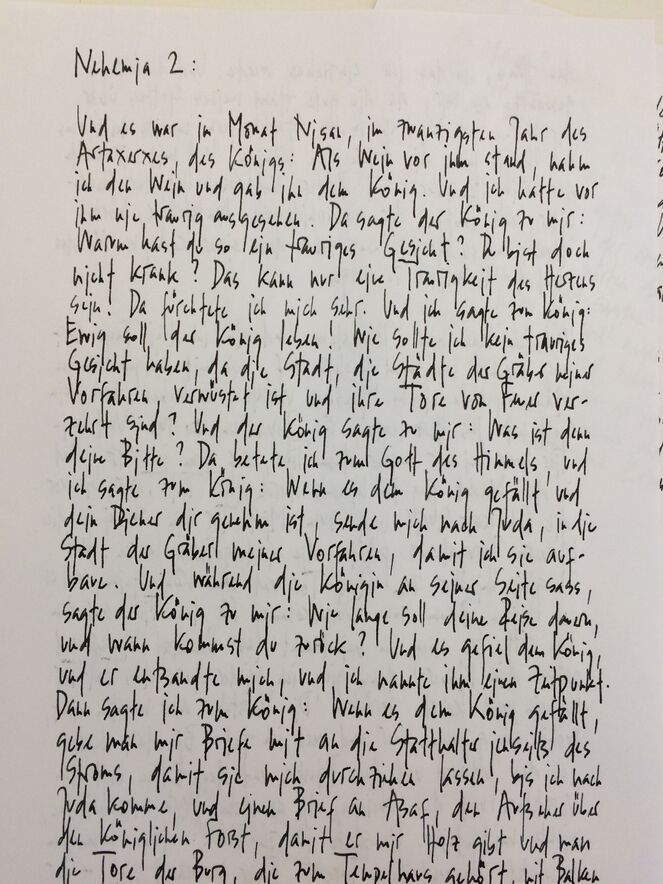 Nehemja 2:
Und es war im Monat Nisan, im zwanzigsten Jahr des
Artaxerxes, des Königs: Als Wein vor ihm stand, nahm
ich den Wein und gab ihn dem König. Und ich hatte vor
ihm nie traurig ausgesehen. Da sagte der König zu mir:
Warum hast du so ein trauriges Gesicht? Du bist doch
nicht krank? Das kann nur eine Traurigkeit des Herzens
sein! Da fürchtete ich mich sehr. Und ich sagte zum König:
Ewig soll der König leben! Wie sollte ich kein trauriges
Gesicht haben, da die Stadt, die Städte der Gräber meiner
Vorfahren, verwüstet ist und ihre Tore von Feuer ver-
zehrt sind? Und der König sagte zu mir: Was ist denn
deine Bitte? Da betete ich zum Gott des Himmels, und
ich sagte zum König: Wenn es dem König gefällt und
dein Diener dir genehm ist, sende mich nach Juda, in die
Stadt der Gräber meiner Vorfahren, damit ich sie auf-
baue. Und während die Königin an seiner Seite sass,
sagte der König zu mir: Wie lange soll deine Reise dauern,
und wann kommst du zurück? Und es gefiel dem König,
und er entsandte mich, und ich nannte ihm einen Zeitpunkt.
Dann sagte ich zum König: Wenn es dem König gefällt,
gebe man mir Briefe mit an die Statthalter jenseits des
Stroms, damit sie mich durchziehen lassen, bis ich nach
Juda komme, und einen Brief an Asaf, den Aufseher über
den Königlichen Forst, damit er mir Holz gibt und man
die Tore der Burg, die zum Tempelhaus gehört, mit Balken